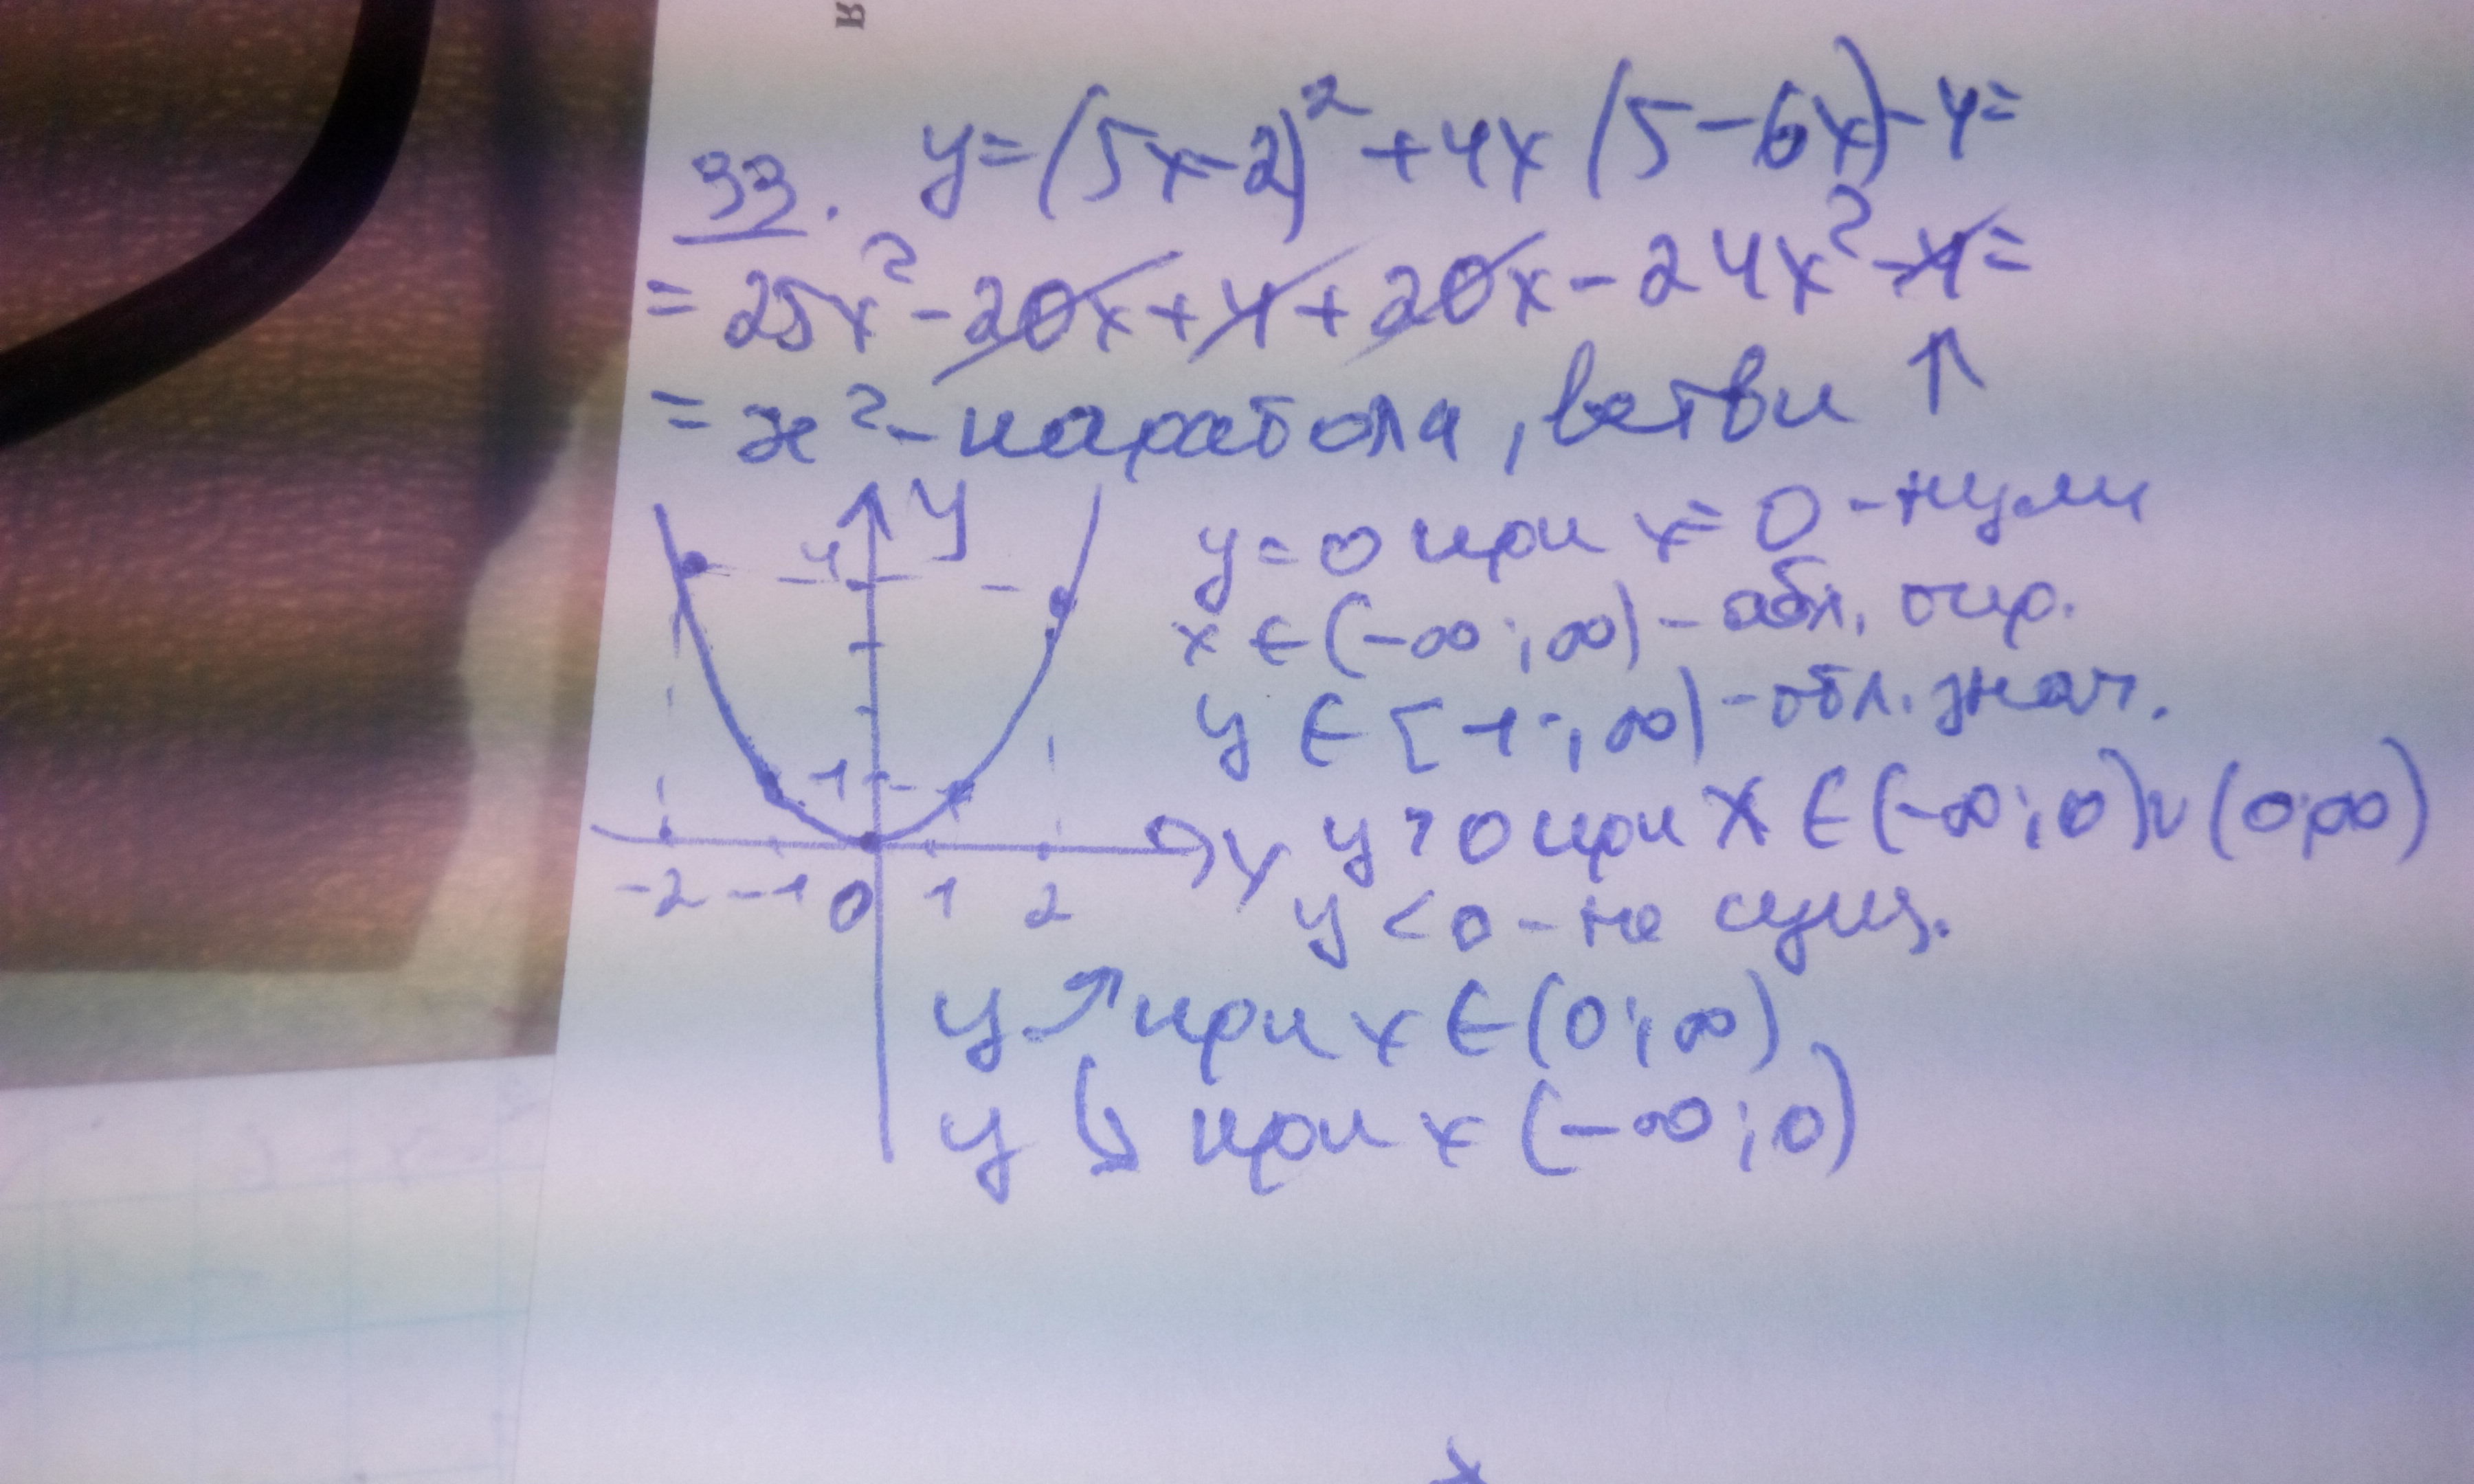 я
33. y=(5x-2)²+4x(5-6x)-4=
=25x²-20x+4+20x-24x²-4=
=x²-парабола, ветви ↑
y
4
1
-2 -1 0 1 2 x
y=0 при x=0 -нули
x∈(-∞;∞)-обл. опр.
y∈[-1;∞)-обл. знач.
y>0 при x∈(-∞;0)∪(0;∞)
y<0-не сущ.
y↗ при x∈(0;∞)
y↘ при x(-∞;0)
x